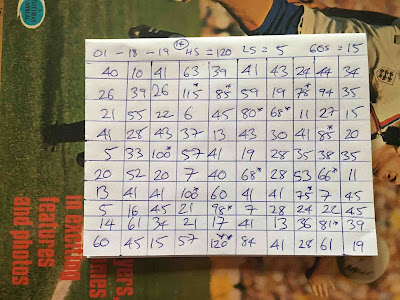 01 - 18 - 19 (16) 4s = 120 2s = 5 60s = 15
40 10 41 63 39 41 43 24 44 34
26 39 26 115* 85* 59 19 78* 94 35
21 55 22 6 45 80* 68* 11 27 15
41 28 43 37 13 43 30 41 85* 20
5 33 100* 57 41 19 28 35 38 35
20 52 20 7 40 68* 28 53 66* 11
13 41 41 100* 60 41 41 75* 7 45
5 16 45 21 98* 7 28 24 22 45
14 61 34 21 17 41 13 36 81* 39
60 45 15 57 120** 84 41 28 61 19
features
and photos